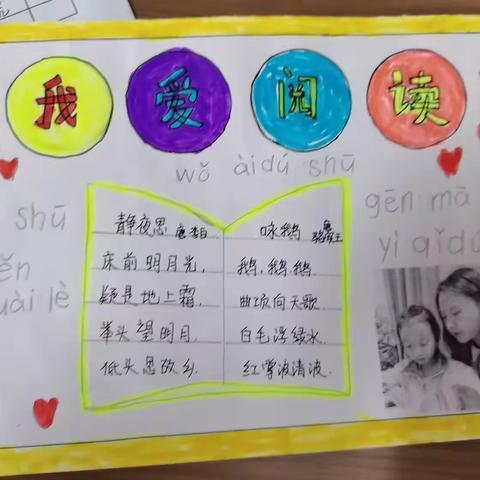 我爱阅读
wǒ àidú shū
shū
ěn
uài lè
静夜思 唐 李白
床前明月光,
疑是地上霜.
举头望明月.
低头思故乡.
咏鹅 骆宾王
鹅,鹅.鹅.
曲项向天歌.
白毛浮绿水.
红掌波清波.
gēn mā
yì qǐdú